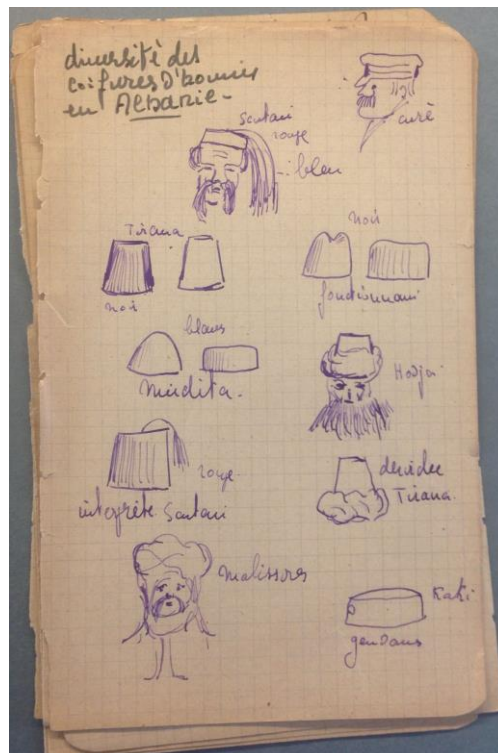 diversité des
coifures d'hommes
en Albanie -
curé
Scutari
rouge
bleu
Tirana
noir
noir
fonctionnaires
blancs
Mirdita.
Hodja
rouge
interprète Scutari
derviches
Tirana.
Malissores
Kaki
gendarms